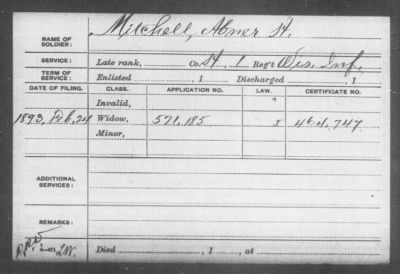 NAME OF SOLDIER: Mitchell, Abner H.
SERVICE: Late rank, Co. H, 1 Reg't Wis. Inf.
TERM OF SERVICE: Enlisted , 1 Discharged , 1
DATE OF FILING. CLASS. APPLICATION NO. LAW. CERTIFICATE NO.
Invalid,
1893, Feb. Widow, 571,185 747
Minor,
ADDITIONAL SERVICES:
REMARKS:
Died , 1 , at